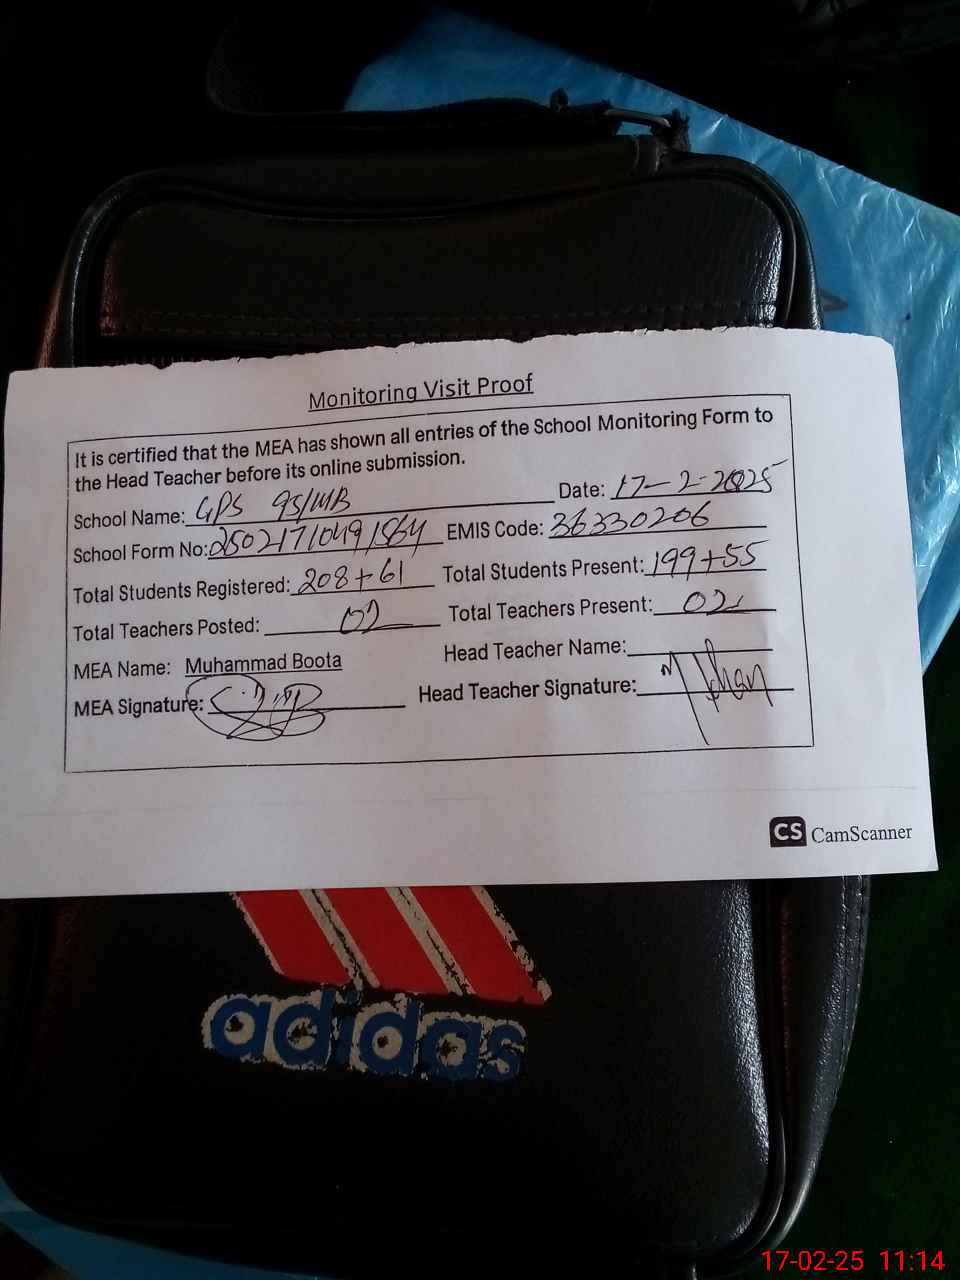 Monitoring Visit Proof
It is certified that the MEA has shown all entries of the School Monitoring Form to
the Head Teacher before its online submission.
School Name: GPS 95/MB Date: 17-2-2025
School Form No: EMIS Code: 36330206
Total Students Registered: 208+61 Total Students Present: 199+55
Total Teachers Posted: 02 Total Teachers Present: 02
MEA Name: Muhammad Boota Head Teacher Name:
MEA Signature: Head Teacher Signature:
CS CamScanner
adidas
17-02-25 11:14